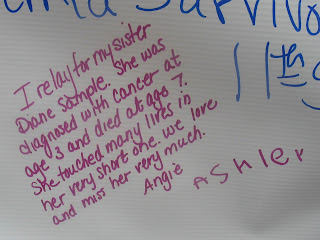 Survivo
11th
I relay for my sister
Diane Sample. She was
diagnosed with cancer at
age 3 and died at age 7.
She touched many lives in
her very short one. We love
and miss her very much.
Angie
ASHLEY